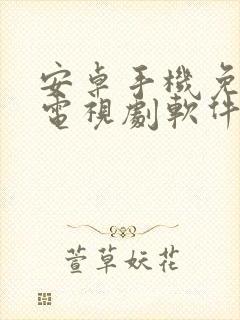 安卓手機免
電視劇軟件
萱草妖花